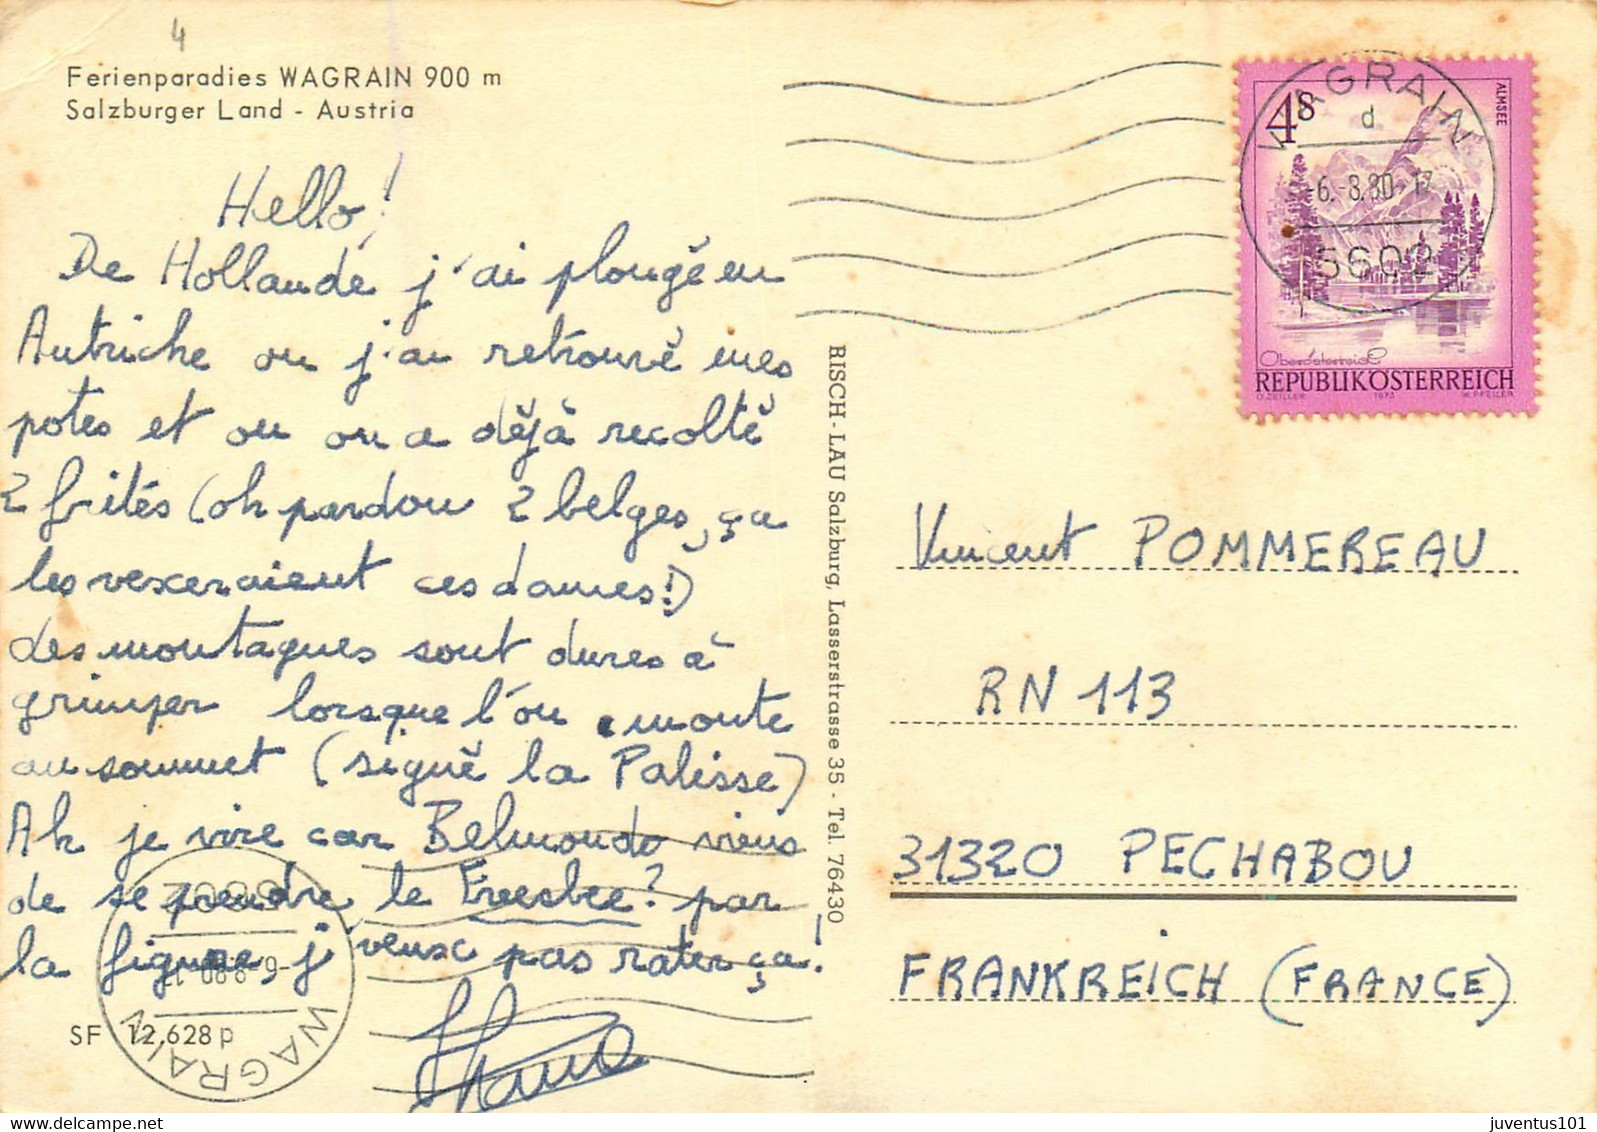 4
Ferienparadies WAGRAIN 900 m
Salzburger Land - Austria
Hello!
De Hollande j'ai plongé en
Autriche ou j'ai retrouvé mes
potes et on on a déjà recolté
2 frités (oh pardon 2 belges, ça
les vexeraient ces dames!)
des montagnes sont dures à
grimper lorsque l'on monte
au sommet (signé la Palisse)
Ah je vire car Belmondo viens
de se prendre le Freesbee? par
la figure j'veux pas rater ça!
SF 12.628 p
WAGRAIN
5602
-6.-8.80-17
RISCH-LAU Salzburg, Lasserstrasse 35 - Tel. 76430
WAGRAIN
d
-6.-8.80-17
5602
4S
ALMSEE
Oberösterreich
REPUBLIK ÖSTERREICH
O. ZEILLER 1973 W. PFEILER
Vincent POMMEREAU
RN 113
31320 PECHABOU
FRANKREICH (FRANCE)
juventus101